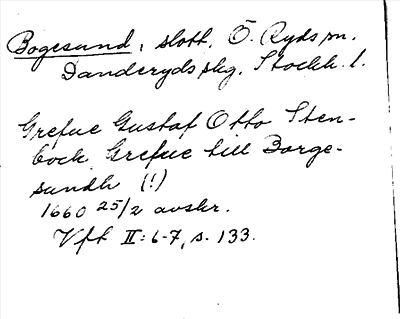 Bogesund, slott, Ö. Ryds sn.
Danderyds skg, Stockh. l.
Grefue Gustaf Otto Sten-
bock Grefue till Borge-
sundh (!)
1660 25/2 avskr.
Vft II: 6-7, s. 133.